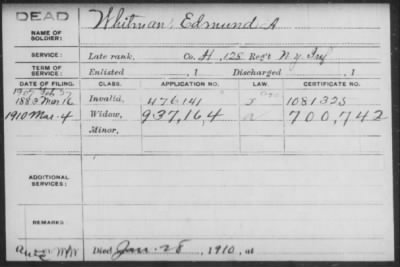 DEAD
NAME OF SOLDIER: Whitman, Edmund A
SERVICE: Late rank, Co. H, 128 Regt N.Y. Inf
TERM OF SERVICE: Enlisted , 1 Discharged , 1
DATE OF FILING. CLASS. APPLICATION NO. LAW. CERTIFICATE NO.
1907 Feb 27
1883 Mar 16 Invalid, 476,141 1081325
1910 Mar. 4 Widow, 937,164 a 700,742
Minor,
ADDITIONAL SERVICES:
REMARKS:
Died Jan. 28, 1910, at